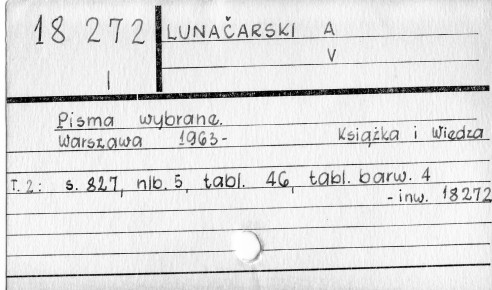 18 272 LUNAČARSKI A
I V
Pisma wybrane.
Warszawa 1963- Książka i Wiedza
T. 2: s. 827, nlb. 5, tabl. 46, tabl. barw. 4
- inw. 18272